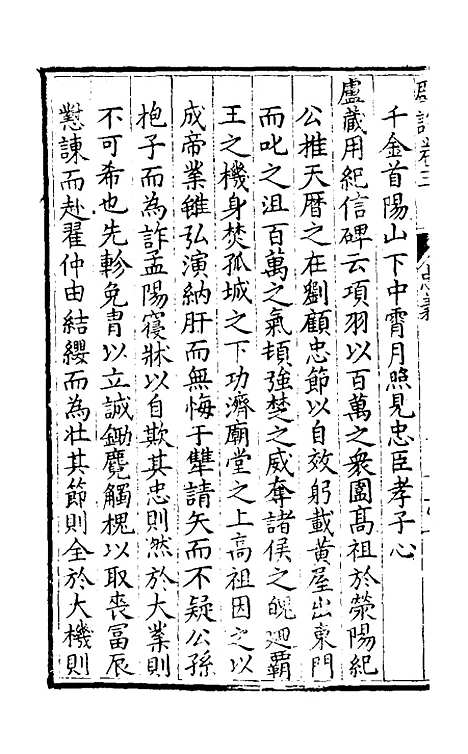 千金首陽山下中霄月照見忠臣孝子心
盧藏用紀信碑云項羽以百萬之衆圍髙祖於滎陽紀
公推天曆之在劉顧忠節以自效躬載黄屋出東門
而叱之沮百萬之氣頓強楚之威奪諸侯之魄廻霸
王之機身焚孤城之下功濟廟堂之上高祖因之以
成帝業雖弘演納肝而無悔于犨請矢而不疑公孫
抱子而為詐孟陽寢牀以自欺其忠則然於大業則
不可希也先軫免胄以立誠鋤麑觸槐以取喪冨辰
懟諫而赴翟仲由結纓而為壯其節則全於大機則